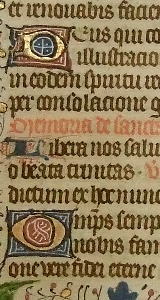 et renovabis facie
Deus qui co
illustratio
in eodem spiritu
per consolacione
Memoria de sanct
Libera nos salu
o beata trinitas. v
dictum ex hoc nunc
Omnps semp
nobis fam
one vere fidei eterne